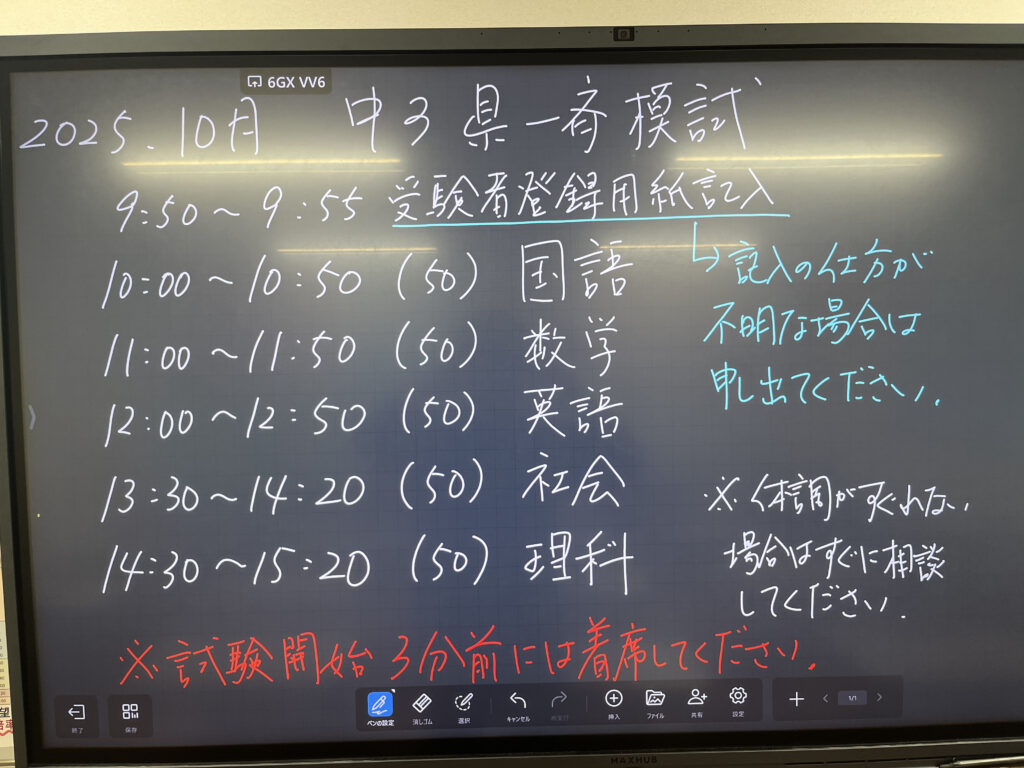 6GX VV6
2025.10月 中3 県一斉模試
9:50〜9:55 受験者登録用紙記入
↳記入の仕方が
不明な場合は
申し出てください.
10:00〜10:50 (50) 国語
11:00〜11:50 (50) 数学
12:00〜12:50 (50) 英語
13:30〜14:20 (50) 社会
14:30〜15:20 (50) 理科
※体調がすぐれない
場合はすぐに相談
してください.
※試験開始3分前には着席してください.
終了 保存 ペンの設定 消しゴム 選択 キャンセル 挿入 ファイル 共有 設定 1/1
MAXHUB